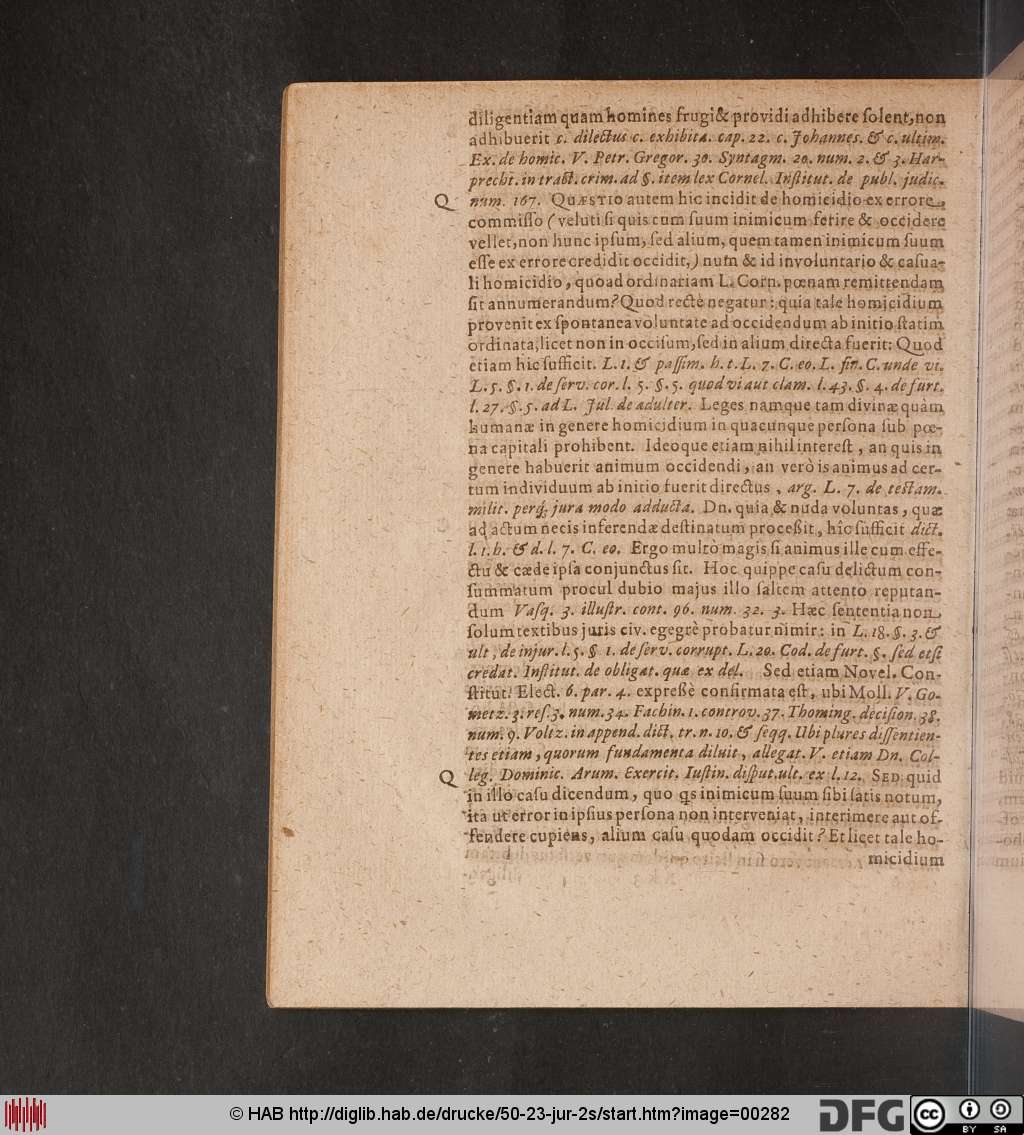 diligentiam quam homines frugi & providi adhibere ſolent, non
adhibuerit c. dilectus c. exhibita. cap. 22. c. Johannes. & c. ultim.
Ex. de homic. V. Petr. Gregor. 30. Syntagm. 20. num. 2. & 3. Har-
precht. in tract. crim. ad §. item lex Cornel. Inſtitut. de publ. judic.
Q num. 167. QUÆSTIO autem hic incidit de homicidio ex errore
commiſſo (veluti ſi quis cum ſuum inimicum ferire & occidere
vellet, non hunc ipſum, ſed alium, quem tamen inimicum ſuum
eſſe ex errore credidit occidit,) num & id involuntario & caſua-
li homicidio, quoad ordinariam L. Corn. pœnam remittendam
ſit annumerandum? Quod rectè negatur: quia tale homicidium
provenit ex ſpontanea voluntate ad occidendum ab initio ſtatim
ordinata, licet non in occiſum, ſed in alium directa fuerit: Quod
etiam hic ſufficit. L. 1. & paſſim. h. t. L. 7. C. eo. L. fin. C. unde vi.
L. 5. §. 1. de ſerv. cor. l. 5. §. 5. quod vi aut clam. l. 43. §. 4. de furt.
l. 27. §. 5. ad L. Jul. de adulter. Leges namque tam divinæ quàm
humanæ in genere homicidium in quacunque perſona ſub pœ-
na capitali prohibent. Ideoque etiam nihil intereſt, an quis in
genere habuerit animum occidendi, an verò is animus ad cer-
tum individuum ab initio fuerit directus, arg. L. 7. de teſtam.
milit. perq́; jura modo adducta. Dn. quia & nuda voluntas, quæ
ad actum necis inferendæ deſtinatum proceßit, hîc ſufficit dict.
l. 1. h. & d. l. 7. C. eo. Ergo multò magis ſi animus ille cum effe-
ctu & cæde ipſa conjunctus ſit. Hoc quippe caſu delictum con-
ſummatum procul dubio majus illo ſaltem attento reputan-
dum Vaſq. 3. illuſtr. cont. 96. num. 32. 3. Hæc ſententia non
ſolum textibus juris civ. egegrè probatur nimir: in L. 18. §. 3. &
ult, de injur. l. 5. § 1. de ſerv. corrupt. L. 20. Cod. de furt. §. ſed etſi
credat. Inſtitut. de obligat. quæ ex del. Sed etiam Novel. Con-
ſtitut. Elect. 6. par. 4. expreßè confirmata eſt, ubi Moll. V. Go-
metz. 3. reſ. 3. num. 34. Fachin. 1. controv. 37. Thoming. deciſion. 38.
num. 9. Voltz. in append. dict. tr. n. 10. & ſeqq. Ubi plures diſſentien-
tes etiam, quorum fundamenta diluit, allegat. V. etiam Dn. Col-
Q leg. Dominic. Arum. Exercit. Iuſtin. diſput. ult. ex l. 12. SED quid
in illo caſu dicendum, quo qs inimicum ſuum ſibi ſatis notum,
ita ut error in ipſius perſona non interveniat, interimere aut of-
fendere cupiens, alium caſu quodam occidit? Et licet tale ho-
micidium
© HAB http://diglib.hab.de/drucke/50-23-jur-2s/start.htm?image=00282
DFG
cc BY SA